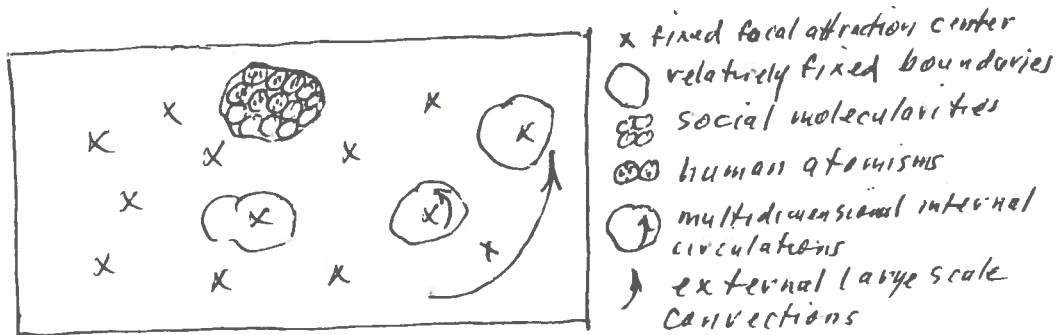 x fixed focal attraction center
relatively fixed boundaries
social molecularities
human atomisms
multidimensional internal
circulations
external large scale
convections